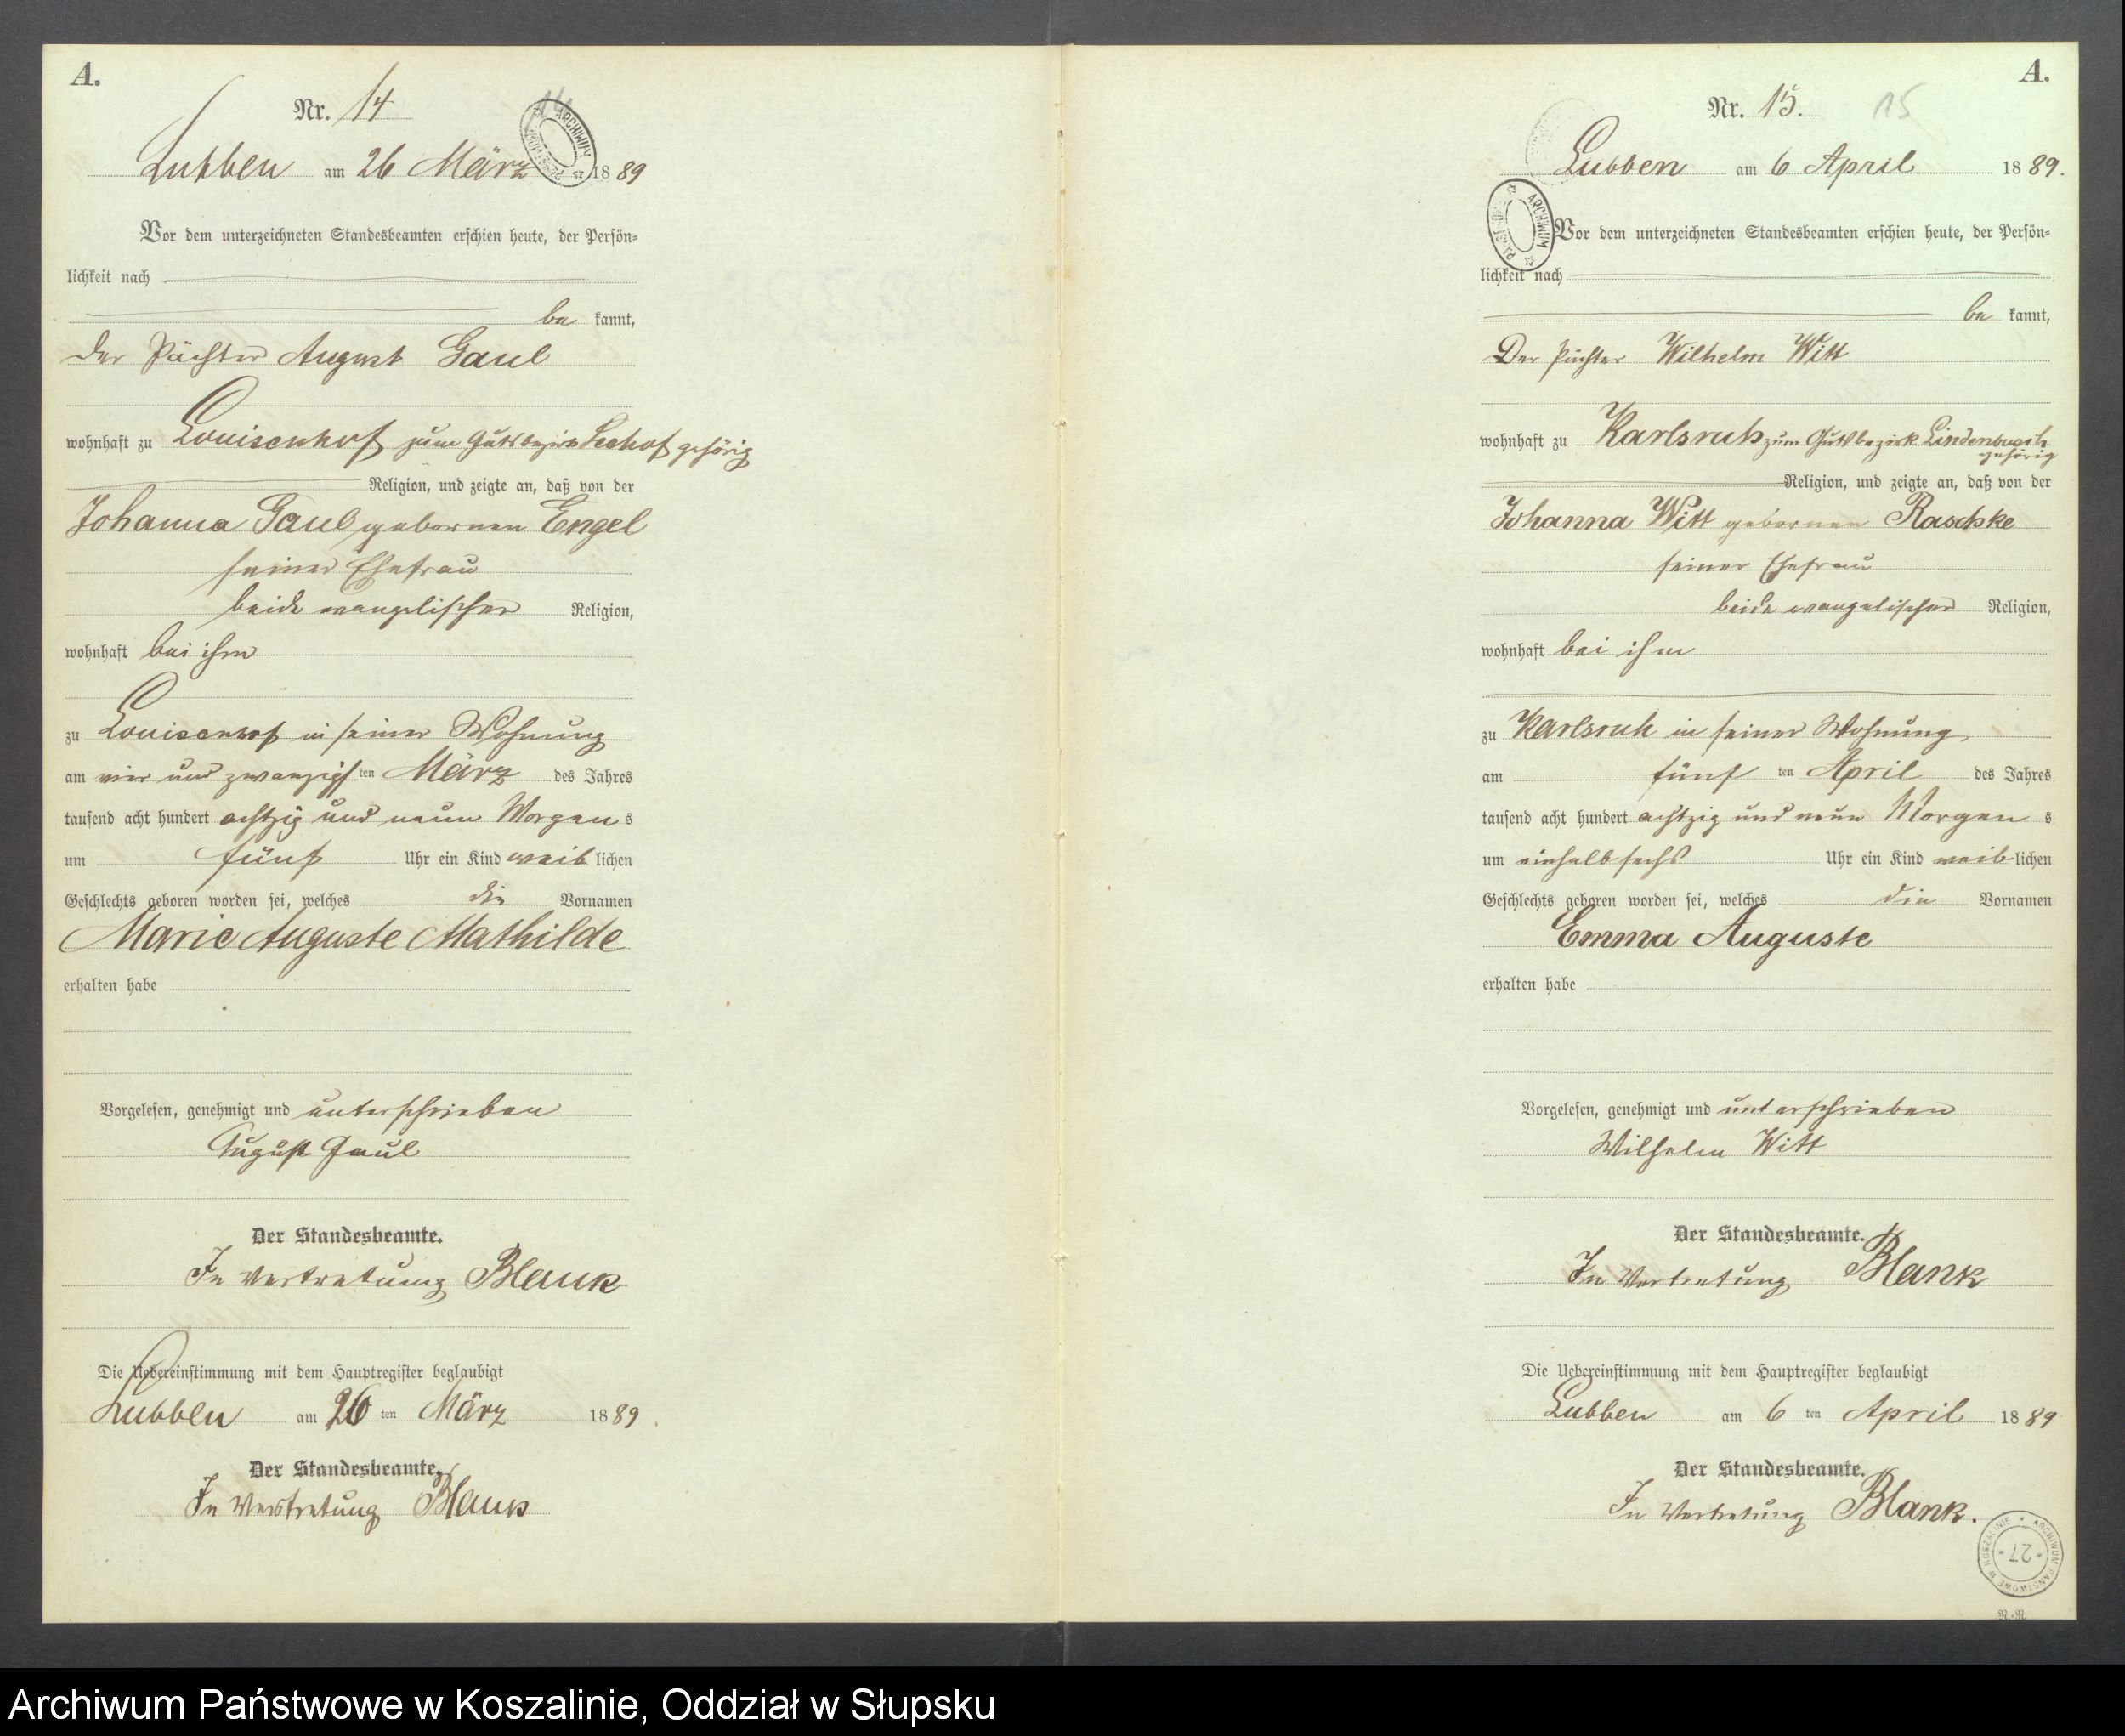 A.
Nr. 14
14
Lubben am 26 März 1889
Vor dem unterzeichneten Standesbeamten erschien heute, der Persön=
lichkeit nach
be kannt,
der Pächter August Gaul
wohnhaft zu Louisenhof zum Gutsbezirk Seehof gehörig
Religion, und zeigte an, daß von der
Johanna Gaul gebornen Engel
seiner Ehefrau
beide evangelischer Religion,
wohnhaft bei ihm
zu Louisenhof in seiner Wohnung
am vier und zwanzigsten März des Jahres
tausend acht hundert achtzig und neun Morgens
um fünf Uhr ein Kind weiblichen
Geschlechts geboren worden sei, welches die Vornamen
Marie Auguste Mathilde
erhalten habe
Vorgelesen, genehmigt und unterschrieben
August Gaul
Der Standesbeamte.
In Vertretung Blank
Die Uebereinstimmung mit dem Hauptregister beglaubigt
Lubben am 26 ten März 1889.
Der Standesbeamte.
In Vertretung Blank
A.
Nr. 15.
15
Lubben am 6 April 1889.
ARCHIWUM
Vor dem unterzeichneten Standesbeamten erschien heute, der Persön=
lichkeit nach
be kannt,
Der Pächter Wilhelm Witt
wohnhaft zu Karlsruh zum Gutsbezirk Lindenbusch
gehörig
Religion, und zeigte an, daß von der
Johanna Witt gebornen Raschke
seiner Ehefrau
beide evangelischer Religion,
wohnhaft bei ihm
zu Karlsruh in seiner Wohnung
am fünf ten April des Jahres
tausend acht hundert achtzig und neun Morgen s
um einhalb sechs Uhr ein Kind weiblichen
Geschlechts geboren worden sei, welches die Vornamen
Emma Auguste
erhalten habe
Vorgelesen, genehmigt und unterschrieben
Wilhelm Witt
Der Standesbeamte.
In Vertretung Blank
Die Uebereinstimmung mit dem Hauptregister beglaubigt
Lubben am 6 ten April 1889
Der Standesbeamte.
In Vertretung Blank.
ARCHIWUM PAŃSTWOWE W KOSZALINIE
* 27 *
N.-N.
Archiwum Państwowe w Koszalinie, Oddział w Słupsku